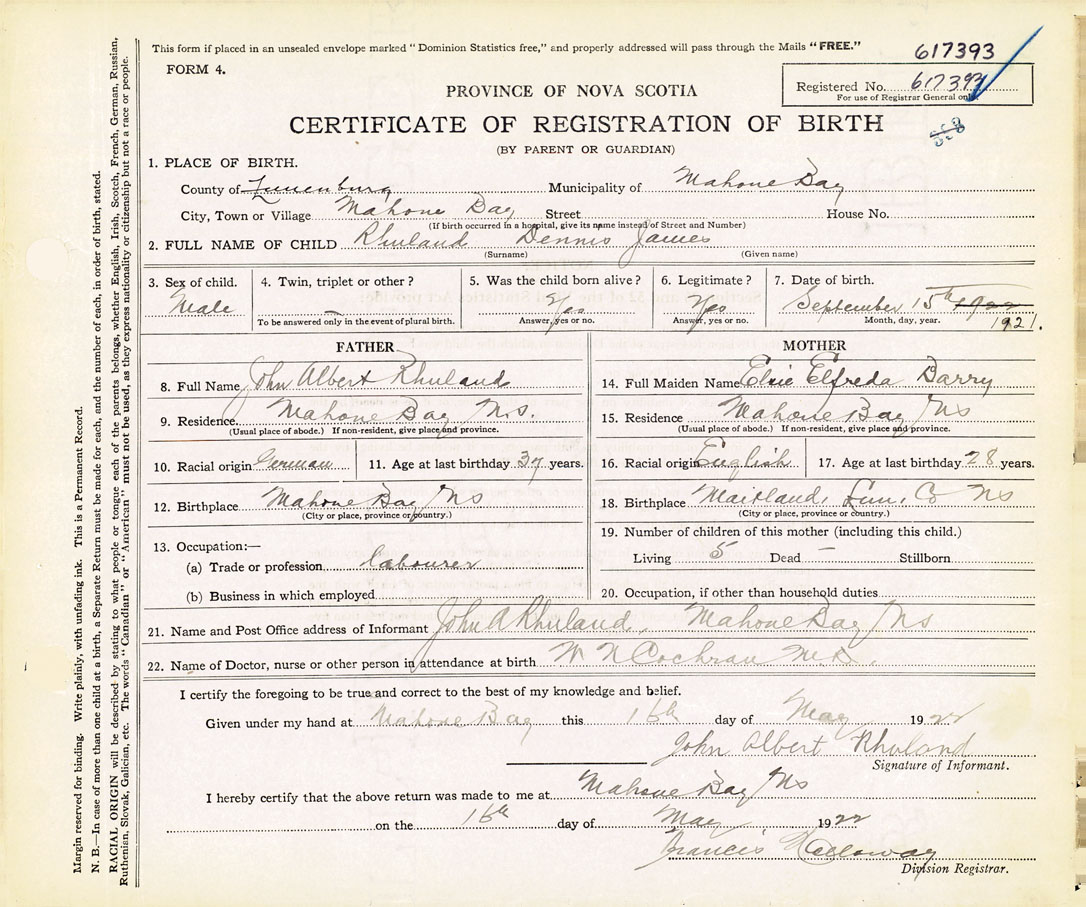 This form if placed in an unsealed envelope marked "Dominion Statistics free," and properly addressed will pass through the Mails "FREE."
617393
FORM 4.
Registered No. 617393
For use of Registrar General only.
PROVINCE OF NOVA SCOTIA
CERTIFICATE OF REGISTRATION OF BIRTH
(BY PARENT OR GUARDIAN)
1. PLACE OF BIRTH.
County of Lunenburg Municipality of Mahone Bay
City, Town or Village Mahone Bay Street House No.
(If birth occurred in a hospital, give its name instead of Street and Number)
2. FULL NAME OF CHILD Rhuland Dennis James
(Surname) (Given name)
3. Sex of child. 4. Twin, triplet or other? 5. Was the child born alive? 6. Legitimate? 7. Date of birth.
Male — Yes Yes September 15th 1922
To be answered only in the event of plural birth. Answer, yes or no. Answer, yes or no. Month, day, year. 1921.
FATHER MOTHER
8. Full Name John Albert Rhuland 14. Full Maiden Name Elsie Elfreda Barry
9. Residence Mahone Bay N.S. 15. Residence Mahone Bay NS
(Usual place of abode.) If non-resident, give place and province. (Usual place of abode.) If non-resident, give place and province.
10. Racial origin German 11. Age at last birthday 37 years. 16. Racial origin English 17. Age at last birthday 28 years.
12. Birthplace Mahone Bay NS 18. Birthplace Maitland, Lun. Co NS
(City or place, province or country.) (City or place, province or country.)
19. Number of children of this mother (including this child.)
13. Occupation:—
Living 5 Dead — Stillborn
(a) Trade or profession labourer
(b) Business in which employed 20. Occupation, if other than household duties
21. Name and Post Office address of Informant John A Rhuland, Mahone Bay NS
22. Name of Doctor, nurse or other person in attendance at birth W N Cochran M.D.
I certify the foregoing to be true and correct to the best of my knowledge and belief.
Given under my hand at Mahone Bay this 16th day of May 1922
John Albert Rhuland
Signature of Informant.
I hereby certify that the above return was made to me at Mahone Bay NS
on the 16th day of May 1922
Francis Holloway
Division Registrar.
Margin reserved for binding. Write plainly, with unfading ink. This is a Permanent Record.
N. B.—In case of more than one child at birth, a Separate Return must be made for each, and the number of each, in order of birth, stated.
RACIAL ORIGIN will be described by stating to what people or tongue each of the parents belongs, whether English, Irish, Scotch, French, German, Russian,
Ruthenian, Slovak, Galician, etc. The words "Canadian" or "American" must not be used, as they express nationality or citizenship but not a race or people.